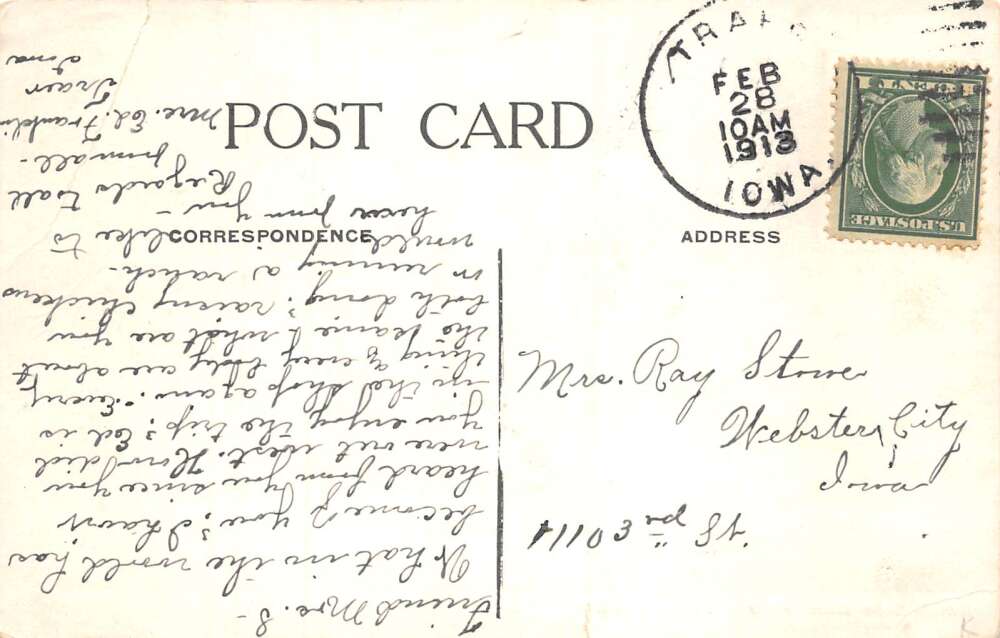 POST CARD
CORRESPONDENCE
ADDRESS
TRAER
FEB
28
10AM
1913
IOWA.
U.S. POSTAGE
1 CENT 1
Mrs. Ray Stowe
Webster City
Iowa
1110 3rd St.
Friend Mrs. S-
What in the world has
become of you? I havn't
heard from you since you
were out west. How did
you enjoy the trip? Ed is
in the shop again. Every
thing & every body are about
the same & what are you
both doing? raising chickens
or running a ranch-
would like to
hear from you-
Regards to all
from all-
Mrs. Ed. Franklin
Traer
Iowa
K